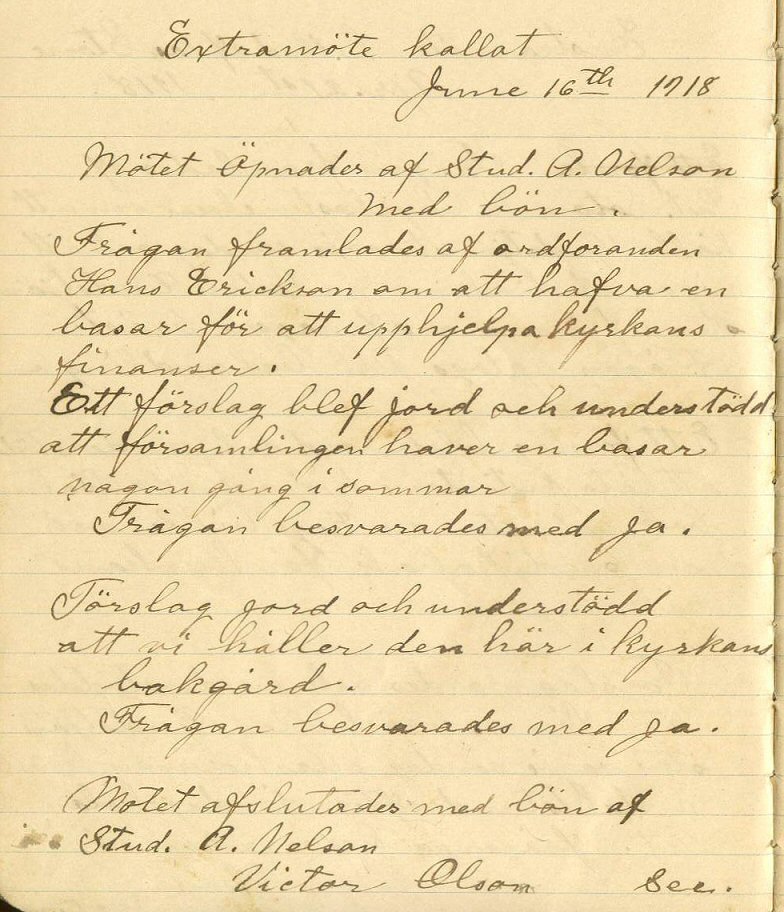 Extramöte kallat
June 16th 1918
Mötet Öpnades af Stud. A. Nelson
med bön.
Frågan framlades af ordforanden
Hans Erickson om att hafva en
basar för att upphjelpa kyrkans
finanser.
Ett förslag blef jord och understödd
att församlingen haver en basar
någon gång i sommar
Frågan besvarades med ja.
Förslag jord och understödd
att vi håller den här i kyrkans
bakgård.
Frågan besvarades med ja.
Motet afslutades med bön af
Stud. A. Nelson
Victor Olson Sec.